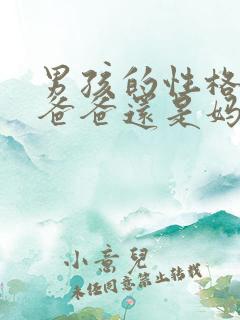 男孩的性格
爸爸還是妈
小意兒
未经同意禁止转载